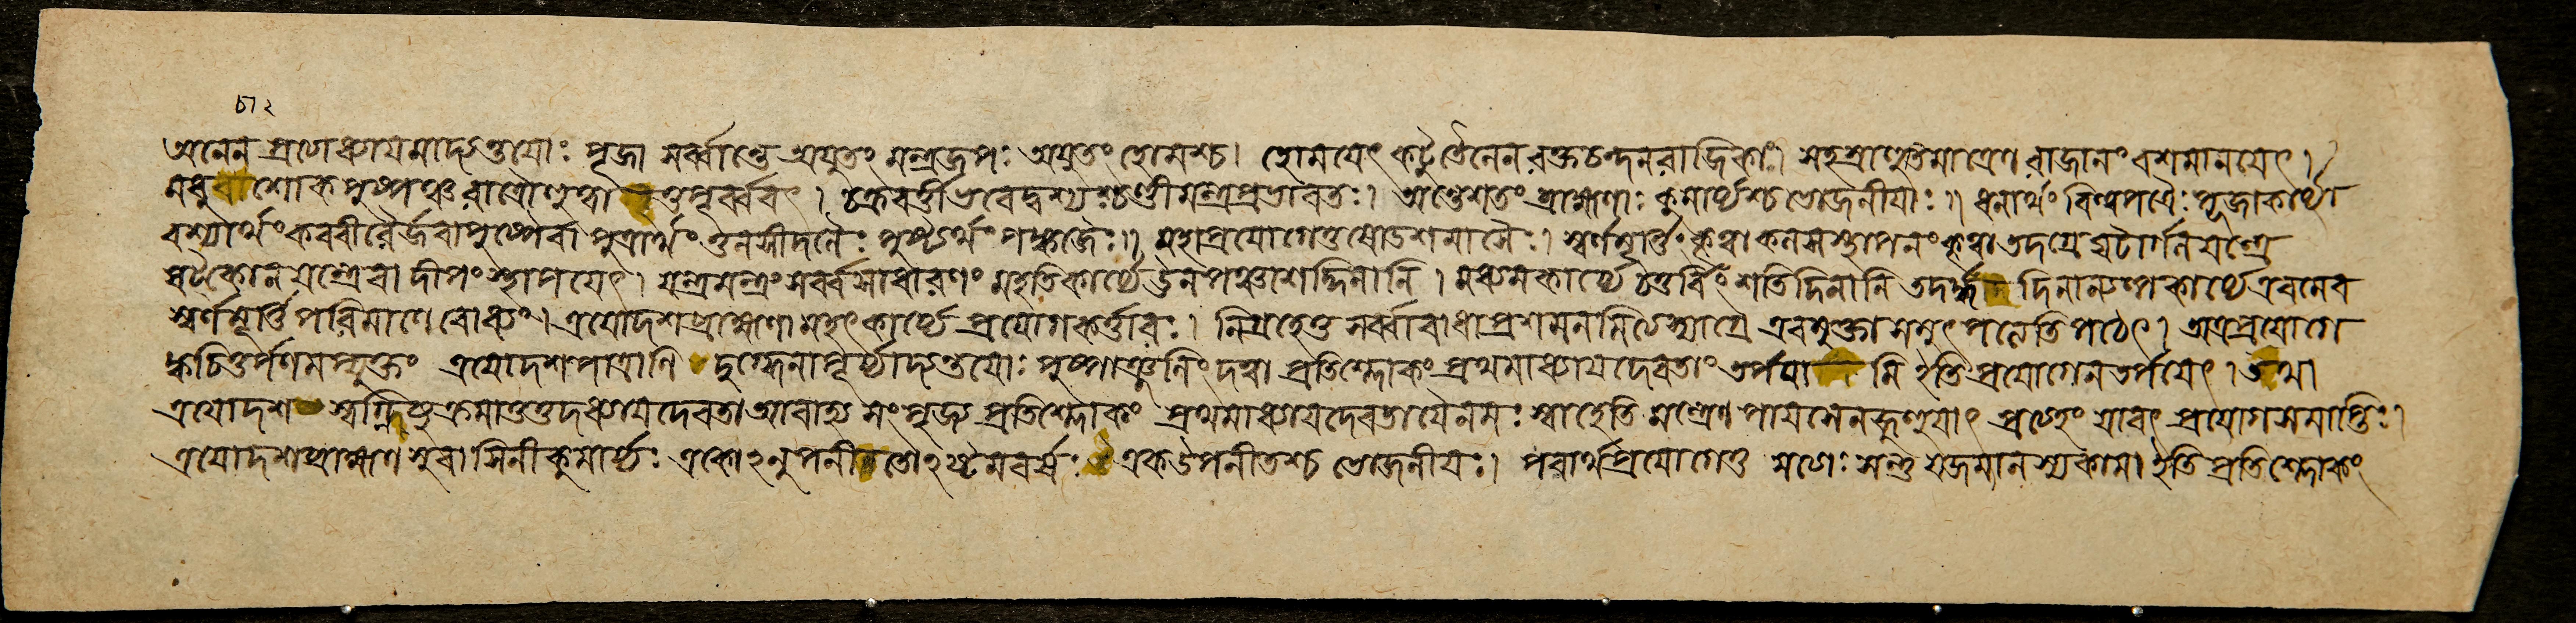 ৮১২
অনেন প্রণেধ্যায়মাদ্যন্তয়োঃ পূজা সর্ব্বান্তে অযুতং মন্ত্রজপঃ অযুতং হোমশ্চ। হোময়েৎ কটুতৈলেন রক্তচন্দনরাজিকাং। সহস্রাহুতিমাত্রেণ রাজানং বশমানয়েৎ।
মধুনাশোকপুষ্পঞ্চ রাত্রৌহুত্বা তু পূর্ব্ববৎ। চক্রবর্ত্তী ভবেদ্বশ্যশ্চণ্ডীমন্ত্রপ্রভাবতঃ। অন্তেশতং ব্রাহ্মণাঃ কুমার্য্যশ্চ ভোজনীয়াঃ॥ ধনার্থং বিল্বপত্রৈঃ পূজাকার্য্যা
বশ্যার্থং করবীরৈর্জবাপুষ্পৈর্বা পুত্রার্থং তুলসীদলৈঃ পুষ্ট্যর্থং পঙ্কজৈঃ॥ মহাপ্রয়োগেতু ষোডশমাসৈঃ। স্বর্ণমূর্ত্তিং কৃত্বা কলসস্থাপনং কৃত্বা তদগ্রে যন্ত্রে
ষট্কোণযন্ত্রেবা দীপং স্থাপয়েৎ। যন্ত্রমন্ত্রং সর্ব্বসাধারণং মহতিকার্য্যে ঊনপঞ্চাশদ্দিনানি। মধ্যমকার্য্যে চতুর্বিংশতিদিনানি তদর্দ্ধ দিনান্যল্পকার্য্যে এবমেব
স্বর্ণমূর্ত্তিপরিমাণে বোধ্যং। ত্রয়োদশব্রাহ্মণা মহৎকার্য্যে প্রয়োগকর্ত্তারঃ। নিগ্রহেতু সর্ব্বাবাধাপ্রশমনমিত্যস্যাগ্রে এবমুক্ত্বা সমুৎপত্যেতি পঠেৎ। অত্রপ্রয়োগে
ক্বচিত্তর্পণমপ্যুক্তং ত্রয়োদশপাত্রাণি দুগ্ধেনাপূর্য্যাদ্যন্তয়োঃ পুষ্পাঞ্জলিং দত্ত্বা প্রতিশ্লোকং প্রথমাধ্যায়দেবতাং তর্পয়ামি ইতিপ্রয়োগেন তর্পয়েৎ। তথা
ত্রয়োদশ স্বগ্নিষু ক্রমাত্তত্তদধ্যায়দেবতা আবাহ্য সংপূজ্য প্রতিশ্লোকং প্রথমাধ্যায়দেবতায়ৈনমঃ স্বাহেতি মন্ত্রেণ পায়সেন জুহুয়াৎ প্রত্যেকং যাবৎ প্রয়োগসমাপ্তিঃ।
ত্রয়োদশব্রাহ্মণ সুবাসিনীকুমার্য্যঃ একোঽনুপনীতোঽষ্টমবর্ষঃ একউপনীতশ্চ ভোজনীয়ঃ। পরার্থপ্রয়োগেতু সত্যাঃ সন্তু যজমানস্যকামা ইতি প্রতিশ্লোকং